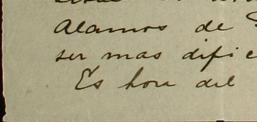 Alamos de
ser mas difi
Es hora del